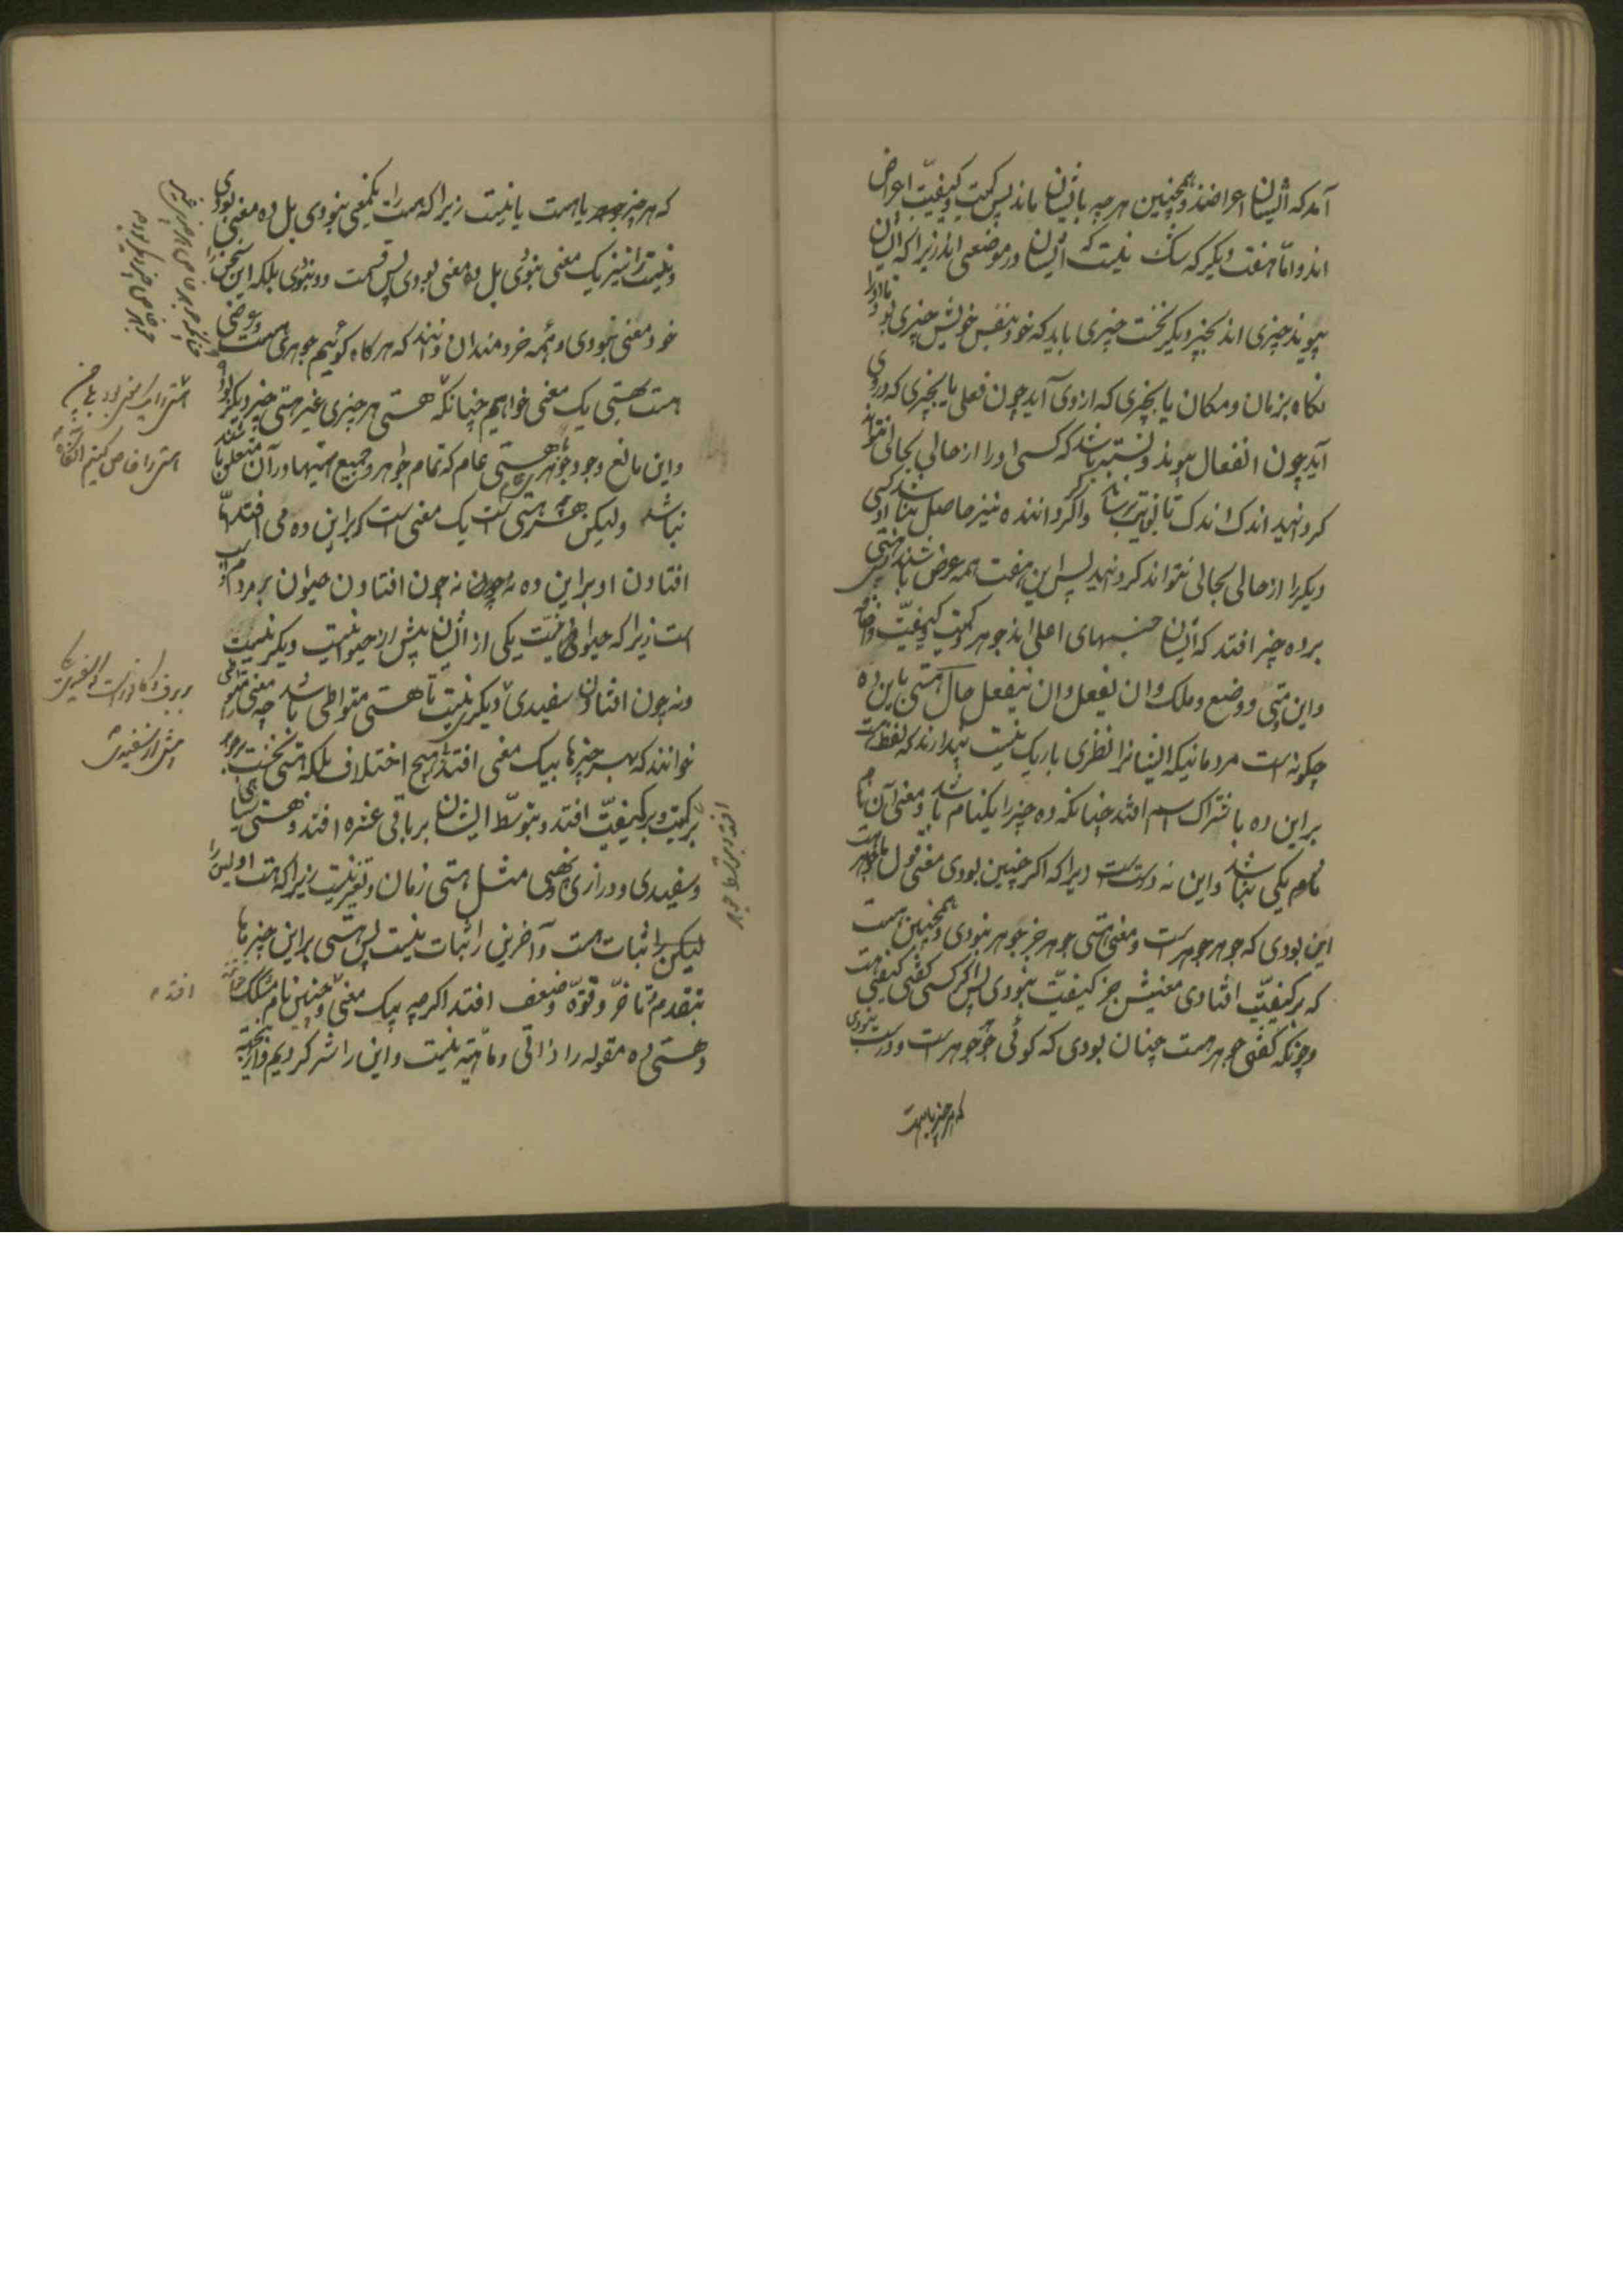 آمد که ایشان اعراضند و همچنین هر چه بایشان ماند پس کمیت و کیفیت اعراض
اند و اما هفت دیگر که شک نیست که ایشان در موضعی اند زیرا که ایشان
پیوند چیزی اند بچیز دیگر نخست چیزی باید که خود بنفس خویش چیزی بود تا او را
نگاه بزمان و مکان یا بچیزی که از وی آید چون فعل یا بچیزی که در وی
آید چون انفعال پیوند و نسبت باشد که کسی او را از حالی بحالی نتواند
گردانید اندک اندک تا بغایت برسد و اگر گرداننده نیز حاصل نباشد کسی
دیگر را از حالی بحالی نتواند گردانید پس این هفت همه عرض باشند پس هستی
بر ده چیز افتد که ایشان جنسهای اعلی اند جوهر و کمیت و کیفیت و اضافه
و این و متی و وضع و ملک و ان یفعل و ان ینفعل حال هستی باین ده
چگونه است مردمانیکه ایشانرا نظری باریک نیست پندارند که لفظ هست
بر این ده باشتراک اسم افتد چنانکه ده چیز را یکنام باشد و معنی آن نام
نام یکی نباشد و این نه درست است زیرا که اگر چنین بودی معنی قول ما جوهر هست
این بودی که جوهر جوهر است و معنی هستی جوهر جز جوهر نبودی و همچنین هست
که بر کیفیت افتادی معنیش جز کیفیت نبودی پس اگر کسی گفتی کیفیتی هست
و چونکه گفتی جوهر هست چنان بودی که گوئی جوهر جوهر است و درست نبودی
که هر چیز یا هست
که هر چیز یا هست یا نیست زیرا که هست را یکمعنی نبودی بل ده معنی بودی
و نیست را نیز یک معنی نبودی بل ده معنی بودی پس قسمت دو نبودی بلکه این سخن را
خود معنی نبودی و همه خردمندان دانند که هرگاه گوئیم جوهری هست و عرضی
هست بهستی یک معنی خواهیم چنانکه هستی هر چیزی غیر هستی چیز دیگر بود
و این مانع وجود هستی عام که تمام جواهر و جمیع هستیها در آن متعلق باشند
نباشد ولیکن هر چه هستی یک معنی است که بر این ده می افتد اما
افتادن او بر این ده نه چون افتادن حیوان بر مردم و اسب
است زیرا که حیوانیت یکی از ایشان بیش از حیوانیت دیگر نیست
و نه چون افتادن سفیدی دیگر نیست تا هستی متواطی باشد چه معنی متواطی
خوانند که بهر چیزها بیک معنی افتد بی هیچ اختلاف بلکه هستی نخست بر جوهر
بر کمیت و بر کیفیت افتد و بتوسط ایشان بر باقی عشره افتد و هستی سیاهی
و سفیدی و درازی و پهنی مثل هستی زمان و تغیر نیست زیرا که هست اولین را
لیکن ثبات هست و آخرین را ثبات نیست پس هستی بر این چیزها
بتقدم و تأخر و قوة و ضعف افتد اگر چه بیک معنی و چنین نام مشکک خوانند
و هستی ده مقوله را ذاتی و ماهیة نیست و این را شرح کردیم و از اینجهت
هستی را خاص کنیم آنگاه
بیش از سفیدی
افتد